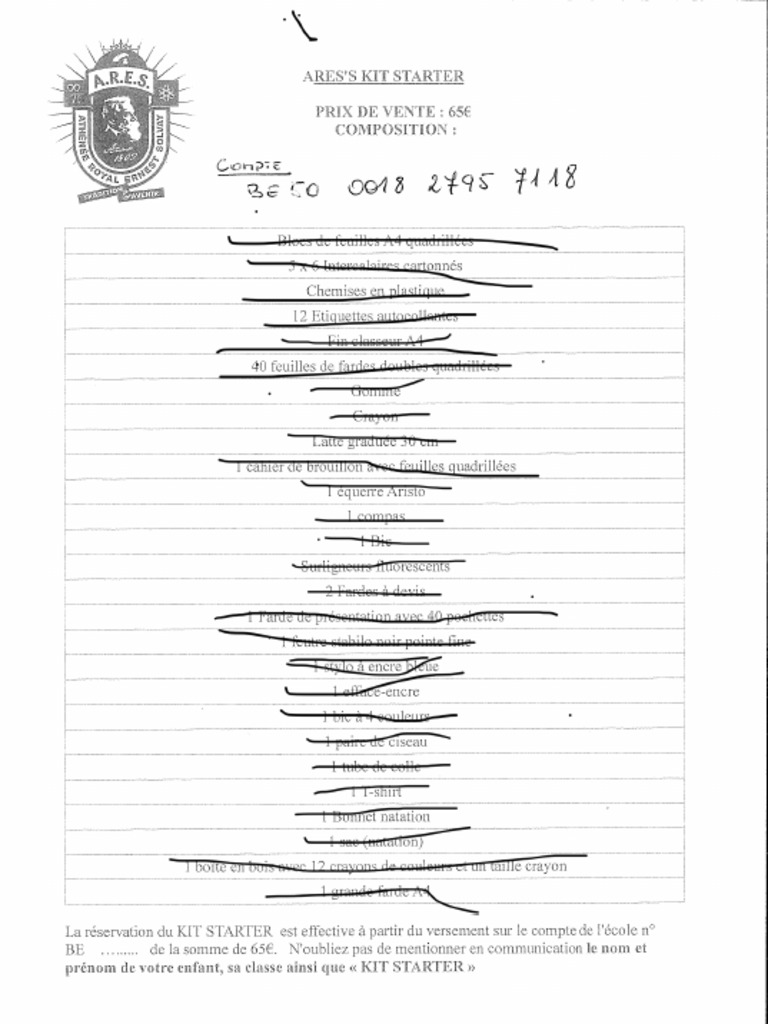 A.R.E.S.
ATHÉNÉE ROYAL ERNEST SOLVAY
ARES'S KIT STARTER
PRIX DE VENTE : 65€
COMPOSITION :
Compte
BE 50 0018 2795 7118
Blocs de feuilles A4 quadrillées
3 x 6 Intercalaires cartonnés
Chemises en plastique
12 Etiquettes autocollantes
Fin classeur A4
40 feuilles de fardes doubles quadrillées
Gomme
Crayon
Latte graduée 30 cm
1 cahier de brouillon avec feuilles quadrillées
1 équerre Aristo
1 compas
1 Bic
Surligneurs fluorescents
2 Fardes à devis
1 Farde de présentation avec 40 pochettes
1 feutre stabilo noir pointe fine
1 stylo à encre bleue
1 efface-encre
1 bic à 4 couleurs
1 paire de ciseau
1 tube de colle
1 T-shirt
1 Bonnet natation
1 sac (natation)
1 boite en bois avec 12 crayons de couleurs et un taille crayon
1 grande farde A4
La réservation du KIT STARTER est effective à partir du versement sur le compte de l'école n°
BE ......... de la somme de 65€. N'oubliez pas de mentionner en communication le nom et
prénom de votre enfant, sa classe ainsi que « KIT STARTER »